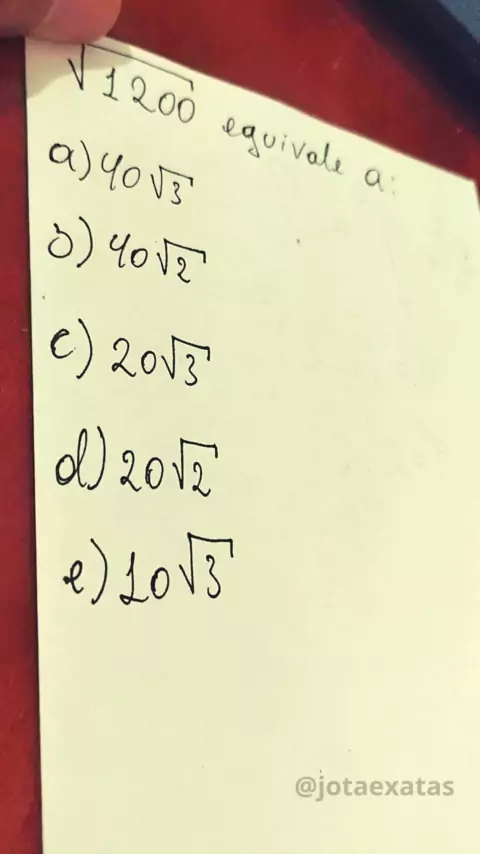 √1200 equivale a:
a) 40√3
b) 40√2
c) 20√3
d) 20√2
e) 10√3
@jotaexatas